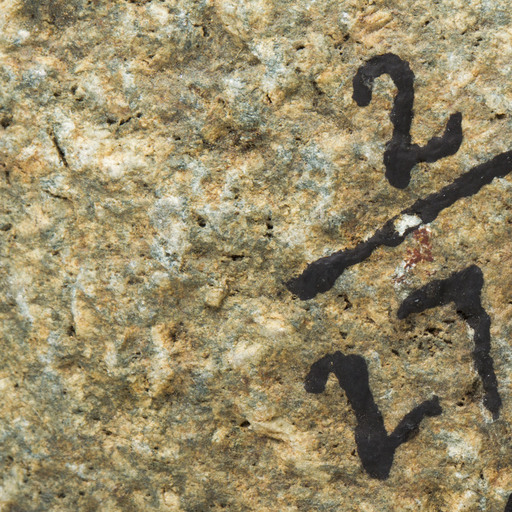 2
27